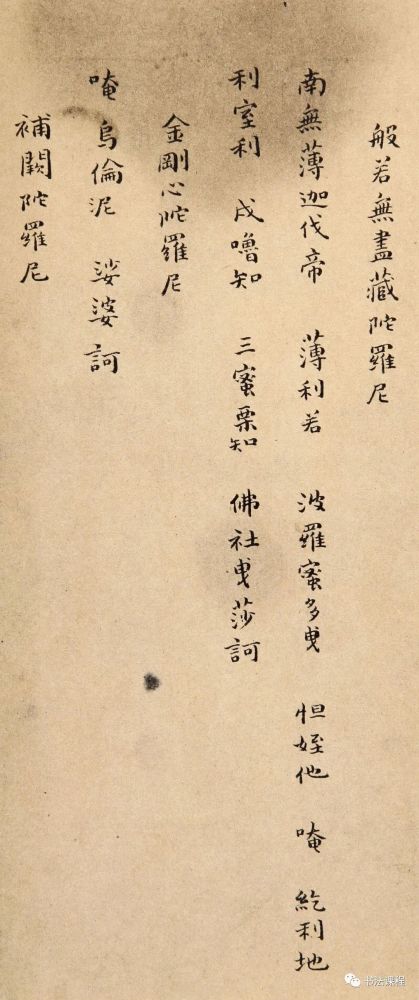 般若無盡藏陀羅尼
南無薄迦伐帝 薄利若 波羅蜜多曳 怛姪他 唵 紇利地
利室利 戍嚕知 三蜜栗知 佛社曳莎訶
金剛心陀羅尼
唵烏倫泥 娑婆訶
補闕陀羅尼
书法课程